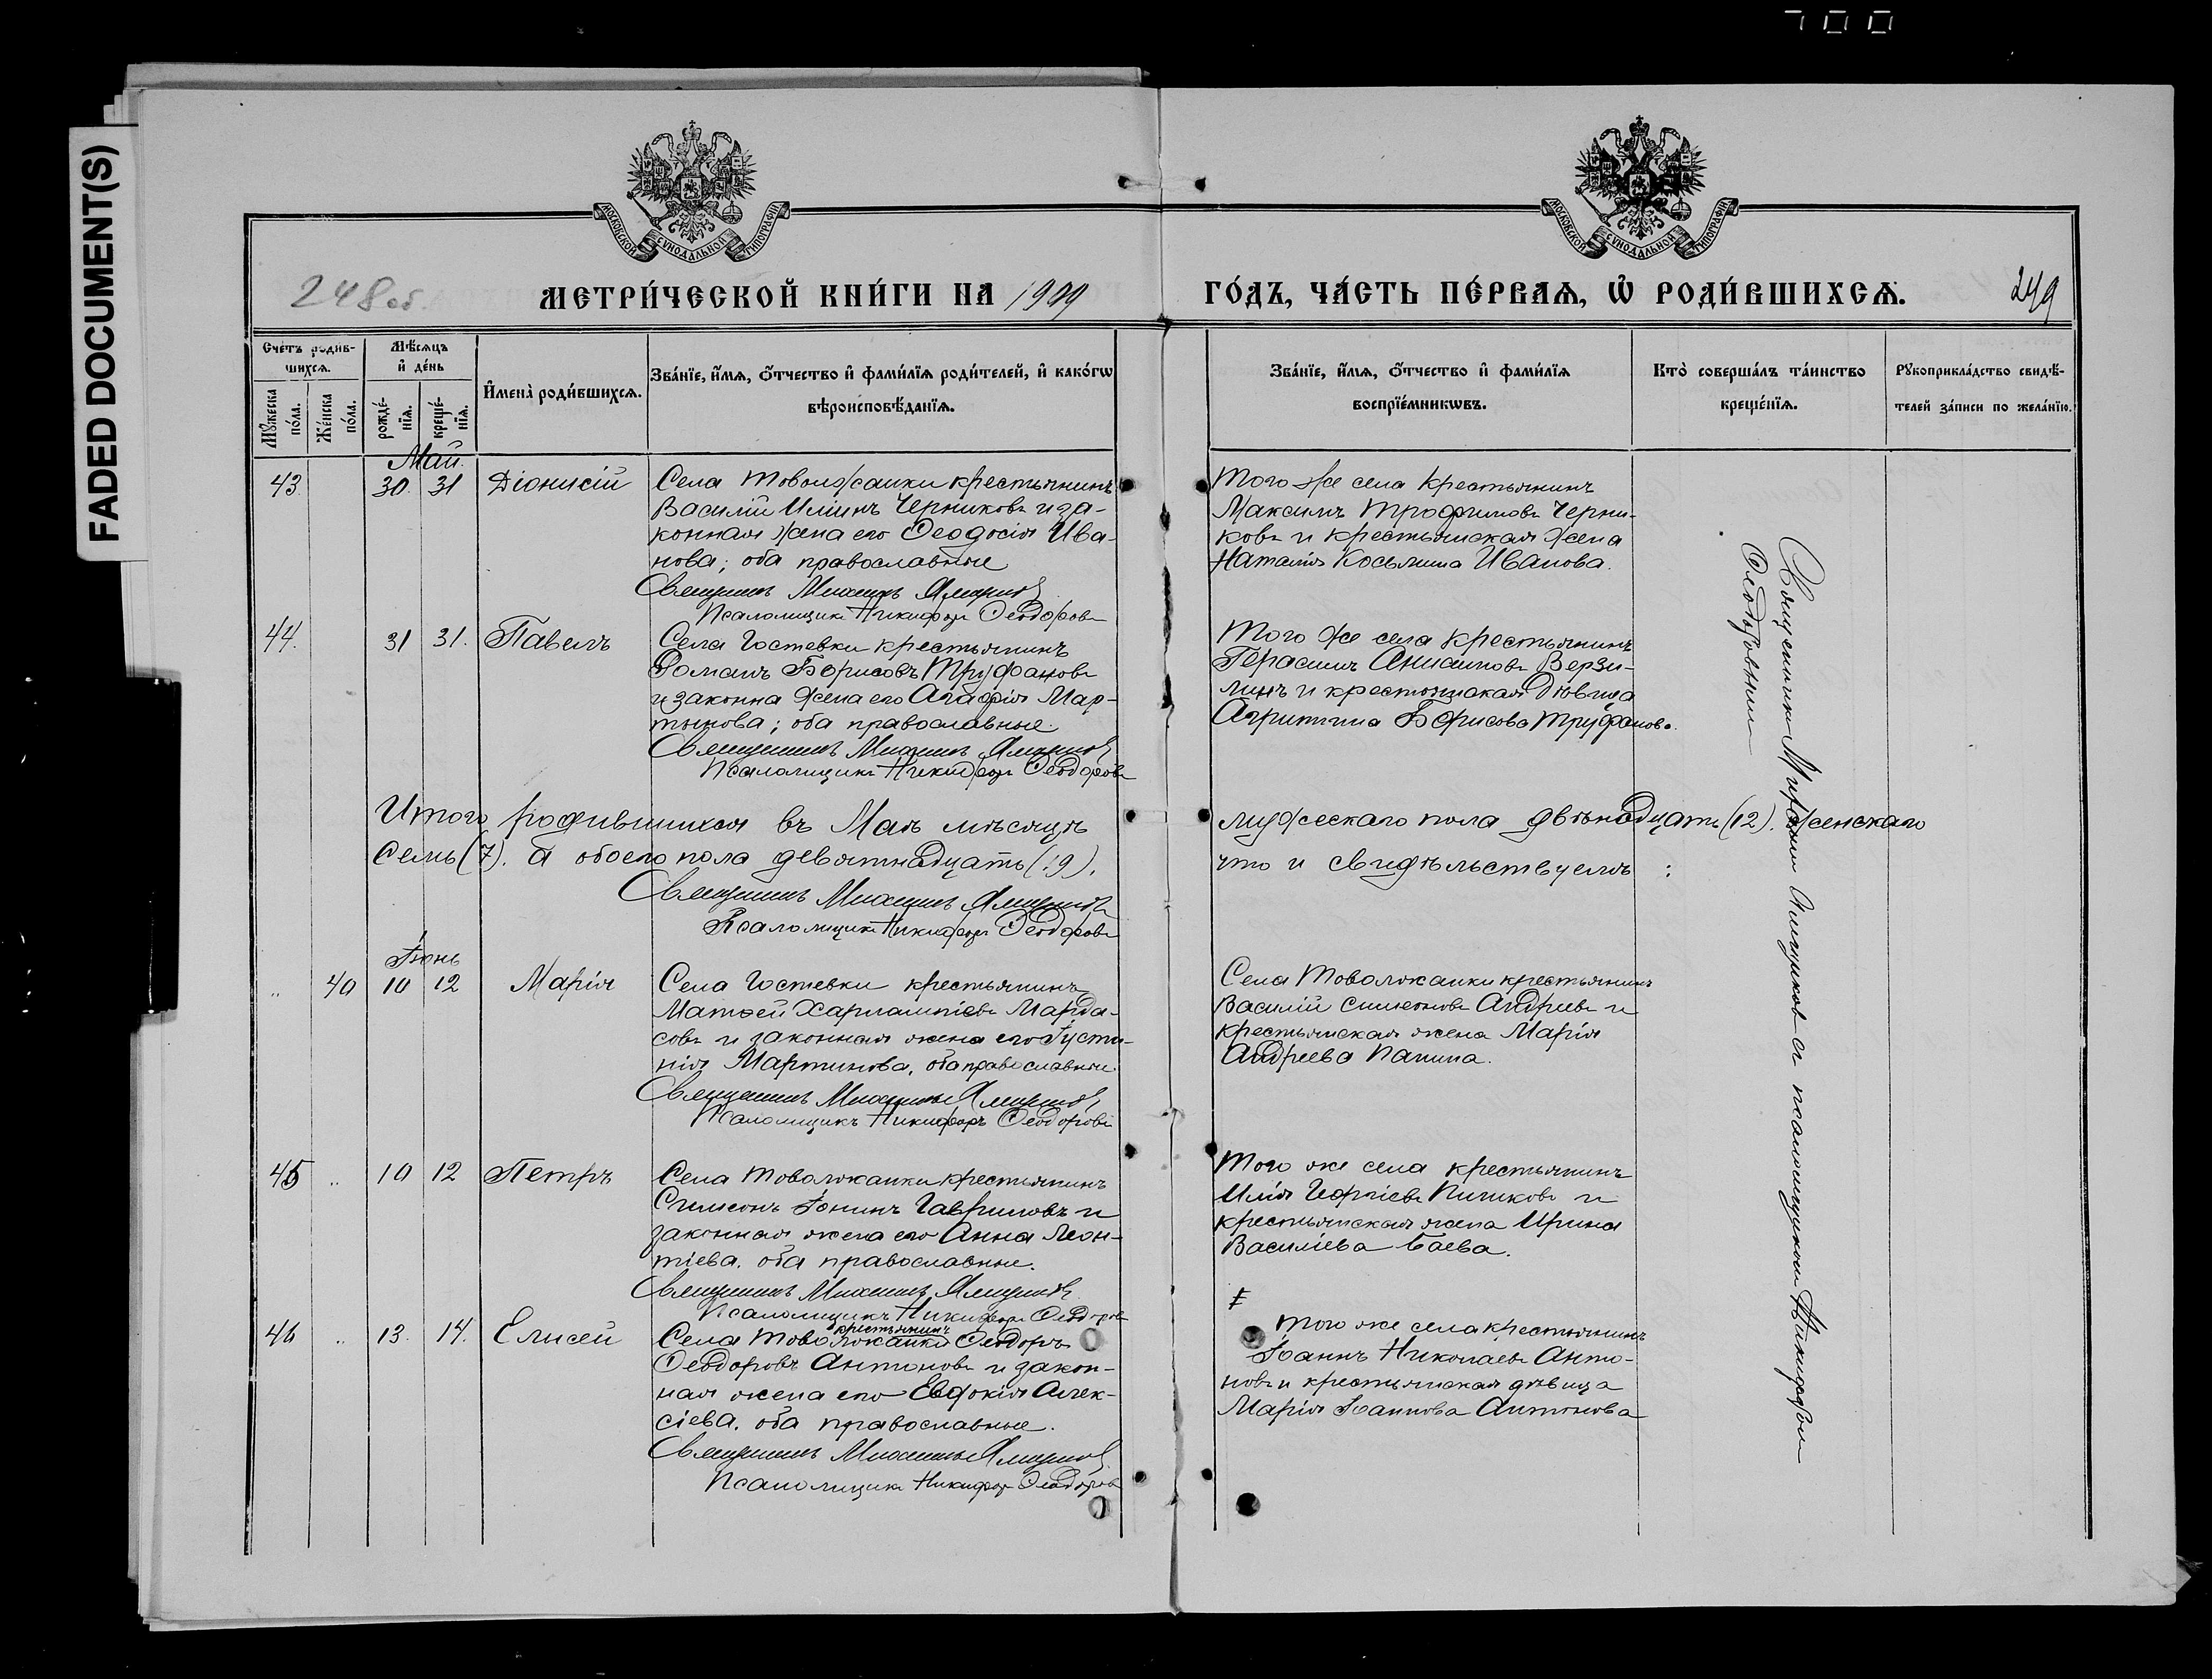 FADED DOCUMENT(S)
700
МОСКОВСКОЙ СѴНОДАЛЬНОЙ ТИПОГРАФІИ
МОСКОВСКОЙ СѴНОДАЛЬНОЙ ТИПОГРАФІИ
248 об.
МЕТРИ́ЧЕСКОЙ КНИ́ГИ НА 1909
ГО́ДЪ, ЧА́СТЬ ПЕ́РВАѦ, Ѡ҆ РОДИ́ВШИХСѦ.
249
Счетъ родив-
шихсѧ.
Мꙋжеска по́ла.
Же́нска по́ла.
Мѣ́сѧцъ
и҆ де́нь
рожде́-
нїѧ.
креще́-
нїѧ.
И҆мена̀ роди́вшихсѧ.
Зва́нїе, и҆́мѧ, ѻ҆́тчество и҆ фами́лїѧ роди́телей, и҆ како́гѡ
вѣроисповѣ́данїѧ.
Зва́нїе, и҆́мѧ, ѻ҆́тчество и҆ фами́лїѧ
воспрїе́мникѡвъ.
Кто̀ соверша́лъ та́инство
креще́нїѧ.
Рꙋкоприкла́дство свидѣ́-
телей за́писи по жела́нїю.
Май.
43 30. 31 Діонисій
Села Товолжанки крестьянинъ
Василій Илиинъ Черниковъ и за-
конная жена его Ѳеодосія Ива-
нова; оба православные
Священникъ Михаилъ
Псаломщикъ Никифоръ Ѳеодоровъ
Того же села крестьянинъ
Максимъ Трофимовъ Черни-
ковъ и крестьянская жена
Наталія Косьмина Иванова.
44. 31 31. Павелъ
Села Гостевки крестьянинъ
Романъ Борисовъ Труфановъ
и законна жена его Агафія Мар-
тынова; оба православные.
Священникъ Михаилъ
Псаломщикъ Никифоръ Ѳеодоровъ
Того же села крестьянинъ
Герасимъ Анисимовъ Верзи-
линъ и крестьянская дѣвица
Агриппина Борисова Труфанова.
Итого родившихся въ Маѣ мѣсяцѣ
мужескаго пола двѣнадцать (12). женскаго
Семь (7). а обоего пола девятнадцать (19).
что и свидѣтельствуемъ :
Священникъ Михаилъ
Псаломщикъ Никифоръ Ѳеодоровъ
Іюнь
" 40 10 12 Марія
Села Гостевки крестьянинъ
Матѳей Харлампіевъ Марда-
совъ и законная жена его Іусти-
нія Мартинова, оба православные.
Священникъ Михаилъ
Псаломщикъ Никифоръ Ѳеодоровъ
Села Товолжанки крестьянинъ
Василій Симеоновъ Андреевъ и
крестьянская жена Марія
Андреева Панина.
45 " 10 12 Петръ
Села Товолжанки крестьянинъ
Симеонъ Іонинъ Гавриловъ и
законная жена его Анна Леон-
тіева. оба православные.
Священникъ Михаилъ
Псаломщикъ Никифоръ Ѳеодоровъ
Того же села крестьянинъ
Илія Георгіевъ и
крестьянская жена Ирина
Василіева Баева.
46 " 13. 14. Елисей
крестьянинъ
Села Товолжанки Ѳеодоръ
Ѳеодоровъ Антоновъ и закон-
ная жена его Евдокія Алек-
сіева. оба православные.
Священникъ Михаилъ
Псаломщикъ Никифоръ Ѳеодоровъ
Того же села крестьянинъ
Іоаннъ Николаевъ Анто-
новъ и крестьянская дѣвица
Марія Іоаннова Антонова
Священникъ Михаилъ съ псаломщикомъ Никифоромъ
Ѳеодоровымъ